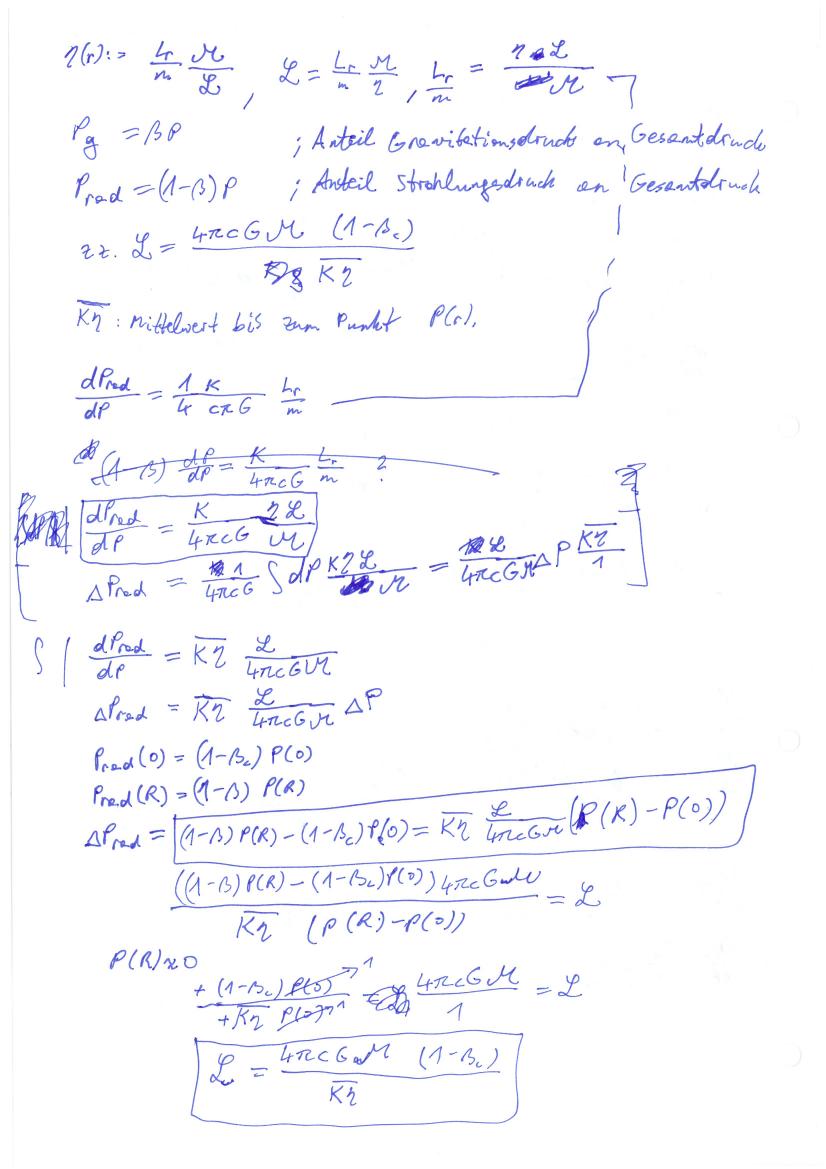 η(r) := L_r/m ℳ/ℒ , ℒ = L_r/m ℳ/η , L_r/m = ηℒ/ℳ
P_g = βP ; Anteil Gravitationsdruck an Gesamtdruck
P_rad = (1-β)P ; Anteil Strahlungsdruck an Gesamtdruck
zz. ℒ = 4πcGℳ (1-β_c) / \overline{κη}
\overline{κη} : Mittelwert bis zum Punkt P(r).
dP_rad/dP = 1/4 κ/cπG L_r/m
(1-β) dP/dP = κ/4πcG L_r/m ?
dP_rad/dP = κ/4πcG ηℒ/ℳ
ΔP_rad = 1/4πcG ∫ dP κηℒ/ℳ = ℒ/4πcGℳ ΔP \overline{κη}/1
∫ | dP_rad/dP = \overline{κη} ℒ/4πcGℳ
ΔP_rad = \overline{κη} ℒ/4πcGℳ ΔP
P_rad(0) = (1-β_c) P(0)
P_rad(R) = (1-β) P(R)
ΔP_rad = (1-β)P(R) - (1-β_c)P(0) = \overline{κη} ℒ/4πcGℳ (P(R) - P(0))
((1-β)P(R) - (1-β_c)P(0)) 4πcGℳ / \overline{κη} (P(R) - P(0)) = ℒ
P(R)≈0
+(1-β_c) P(0) 1 / +\overline{κη} P(0) 1 4πcGℳ/1 = ℒ
ℒ = 4πcGℳ (1-β_c) / \overline{κη}